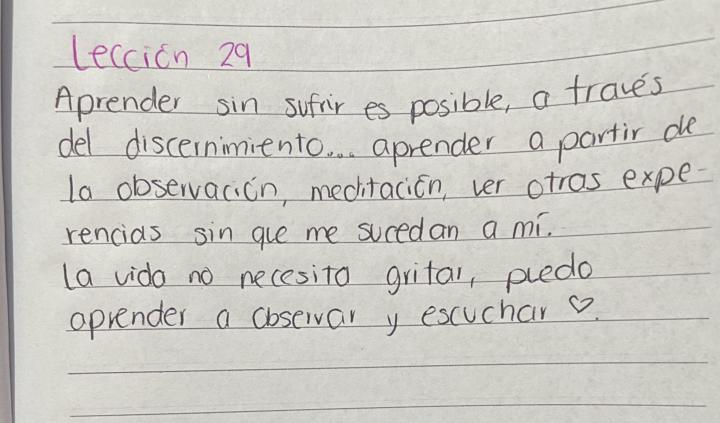 Lección 29
Aprender sin sufrir es posible, a través
del discernimiento... aprender a partir de
la observación, meditación, ver otras expe-
rencias sin que me sucedan a mí.
La vida no necesita gritar, puedo
aprender a observar y escuchar ♡.